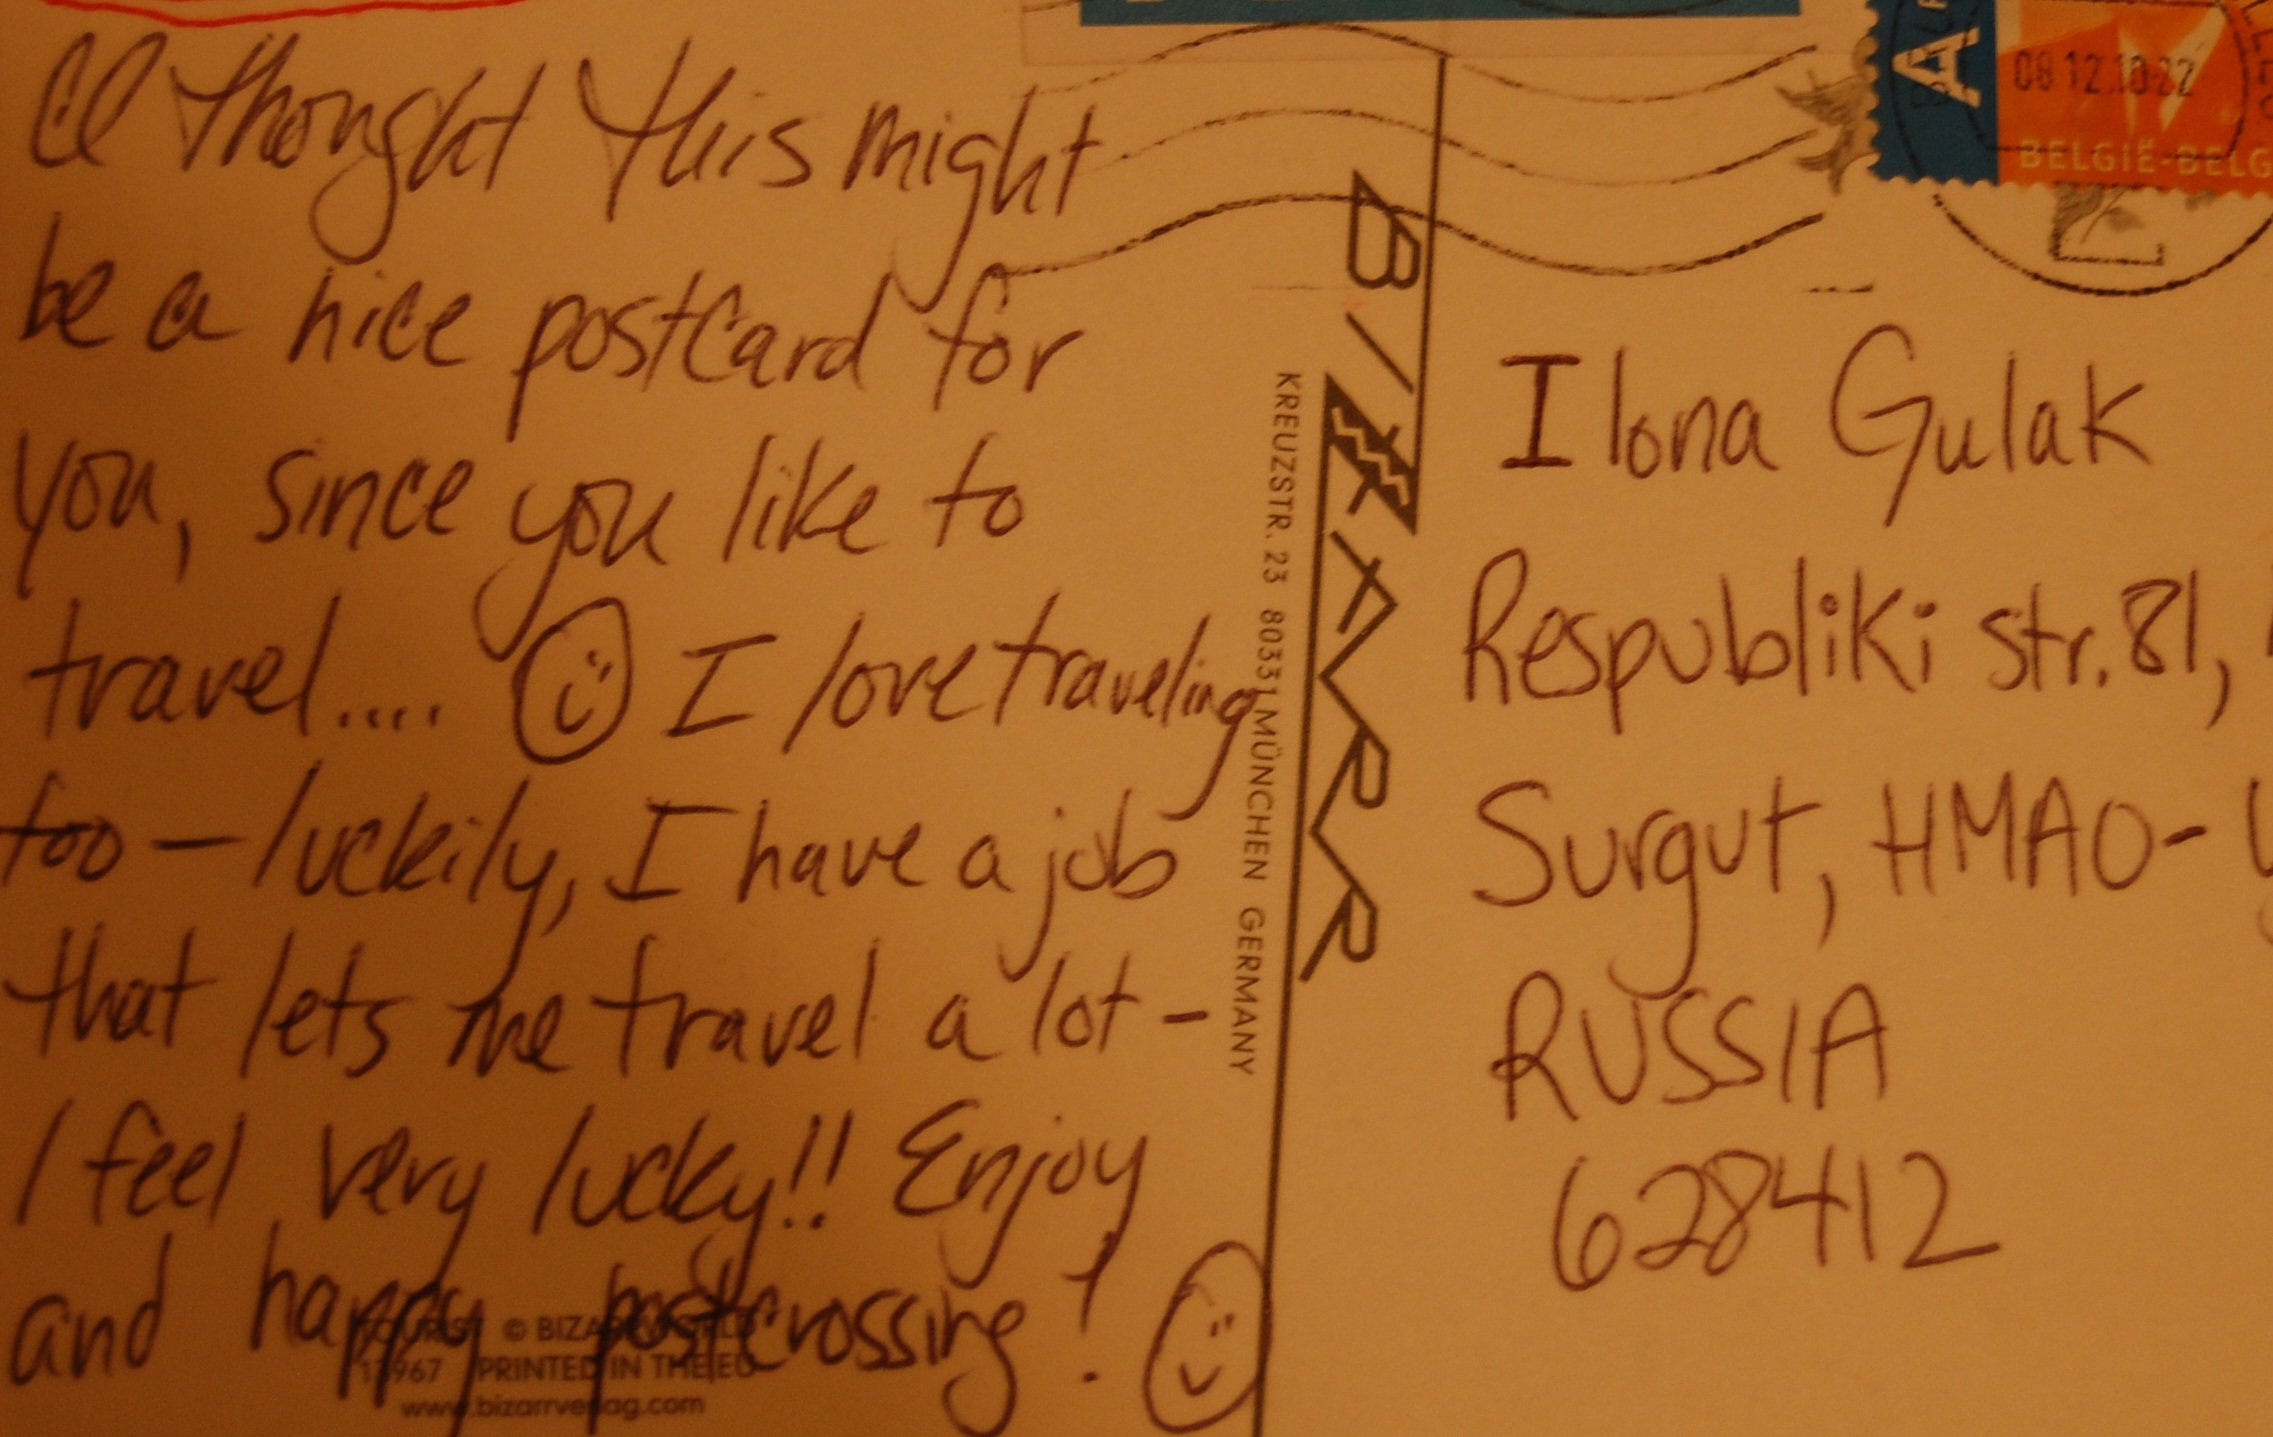 I thought this might
be a nice postcard for
you, since you like to
travel.... I love traveling
too – luckily, I have a job
that lets me travel a lot –
I feel very lucky!! Enjoy
and happy postcrossing!
TOURIST © BIZARRWORLD
13967 PRINTED IN THE EU
www.bizarrverlag.com
BIZARR
KREUZSTR. 23 80331 MÜNCHEN GERMANY
A
08 12.10-22
BELGIË-BELG
Ilona Gulak
Respubliki str. 81,
Surgut, HMAO-
RUSSIA
628412